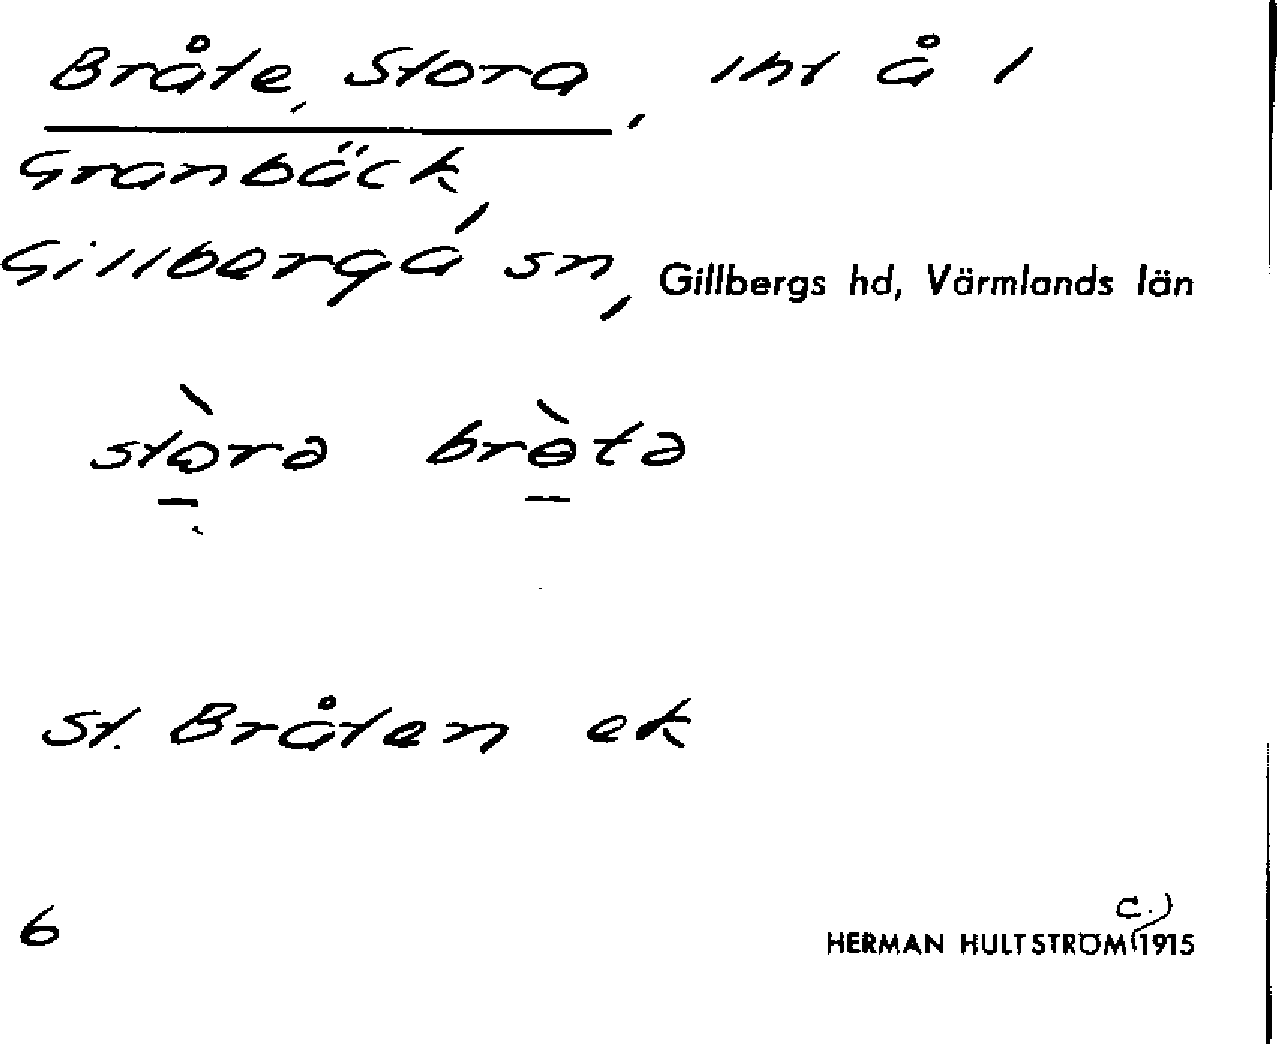 Bråte, Stora, iht å 1
Granbäck,
Gillberga sn, Gillbergs hd, Värmlands län
stòrə brètə
St. Bråten ek
6
c.)
HERMAN HULTSTRÖM (1915